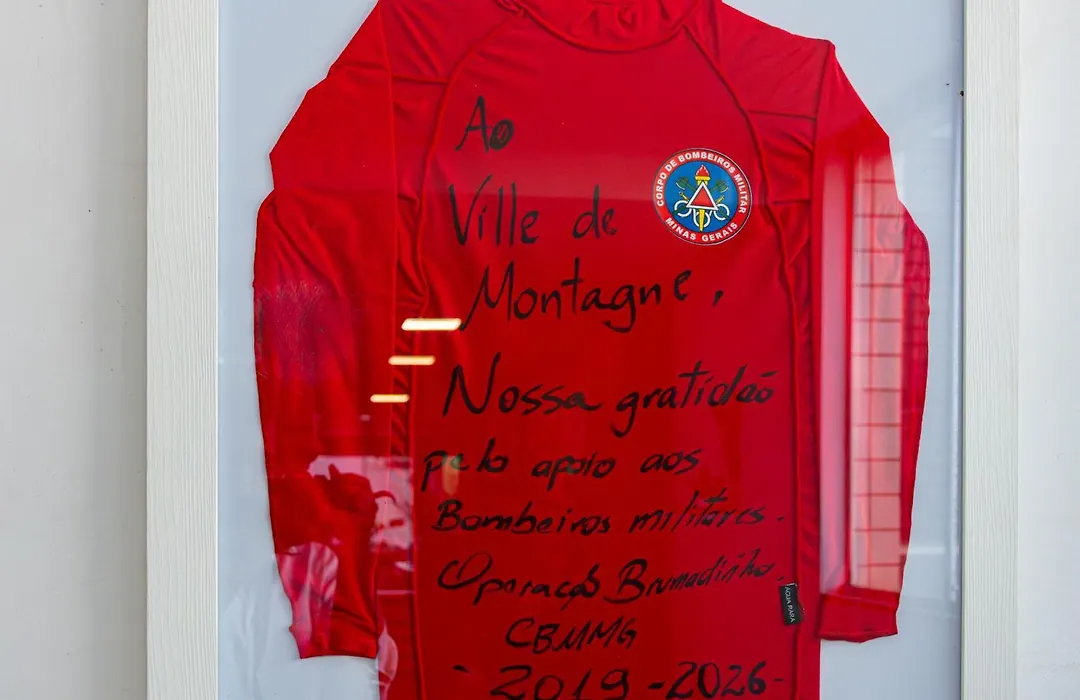 Ao
Ville de
Montagne,
Nossa gratidão
pelo apoio aos
Bombeiros militares.
Operação Brumadinho.
CBMMG
- 2019 - 2026 -
CORPO DE BOMBEIROS MILITAR
MINAS GERAIS
ÁGUA RARA